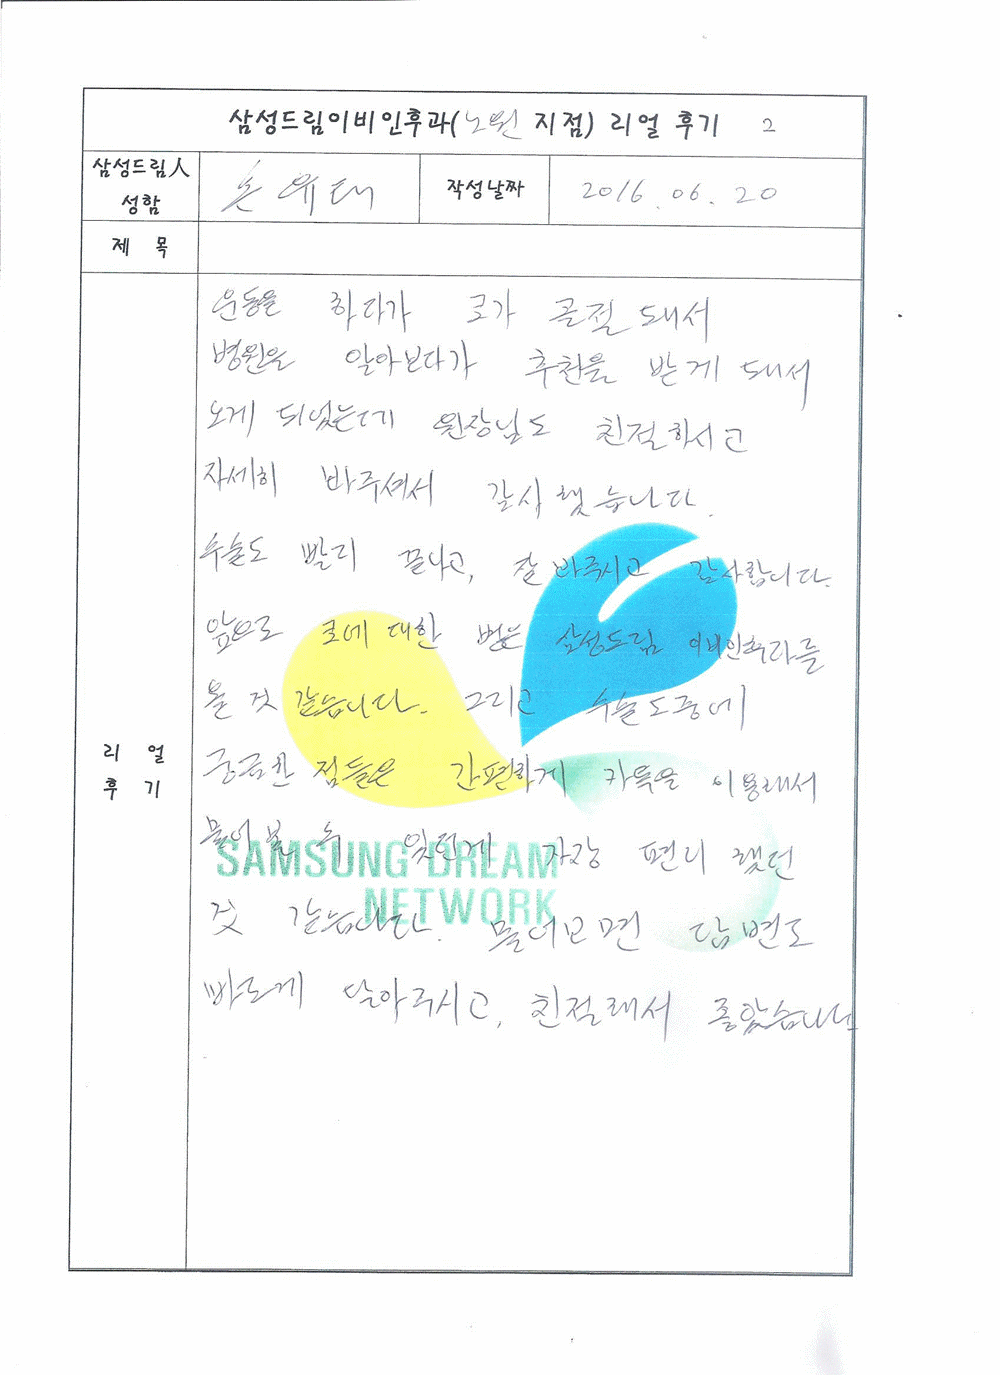 삼성드림이비인후과(노원 지점) 리얼 후기 2
삼성드림人
성함
손유태
작성날짜
2016.06.20
제 목
리 얼
후 기
운동을 하다가 코가 골절 돼서
병원을 알아보다가 추천을 받게 돼서
오게 되었는데 원장님도 친절하시고
자세히 봐주셔서 감사했습니다.
수술도 빨리 끝나고, 잘 봐주시고 감사합니다.
앞으로 코에 대한 병은 삼성드림 이비인후과를
올 것 같습니다. 그리고 수술도중에
궁금한 점들은 간편하게 카톡을 이용해서
물어볼 수 있던게 가장 편리했던
것 같습니다. 물어보면 답변도
바르게 달아주시고, 친절해서 좋았습니다
SAMSUNG DREAM
NETWORK